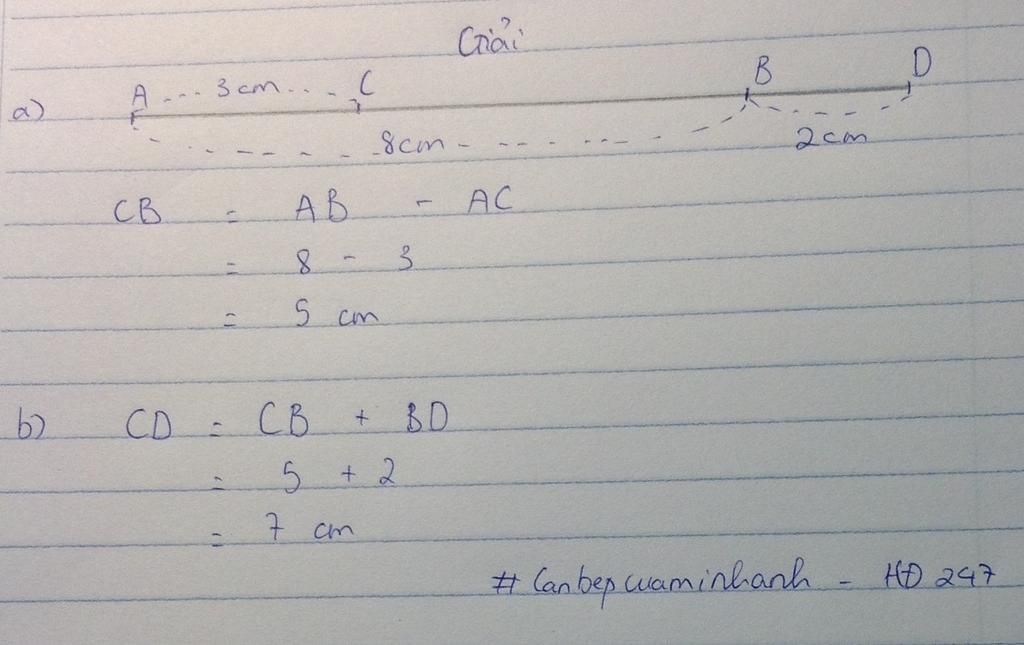 Giải
a) A --- 3cm --- C B D
8cm 2cm
CB = AB - AC
= 8 - 3
= 5 cm
b) CD = CB + BD
= 5 + 2
= 7 cm
# Canbepcuaminhanh - HĐ 247